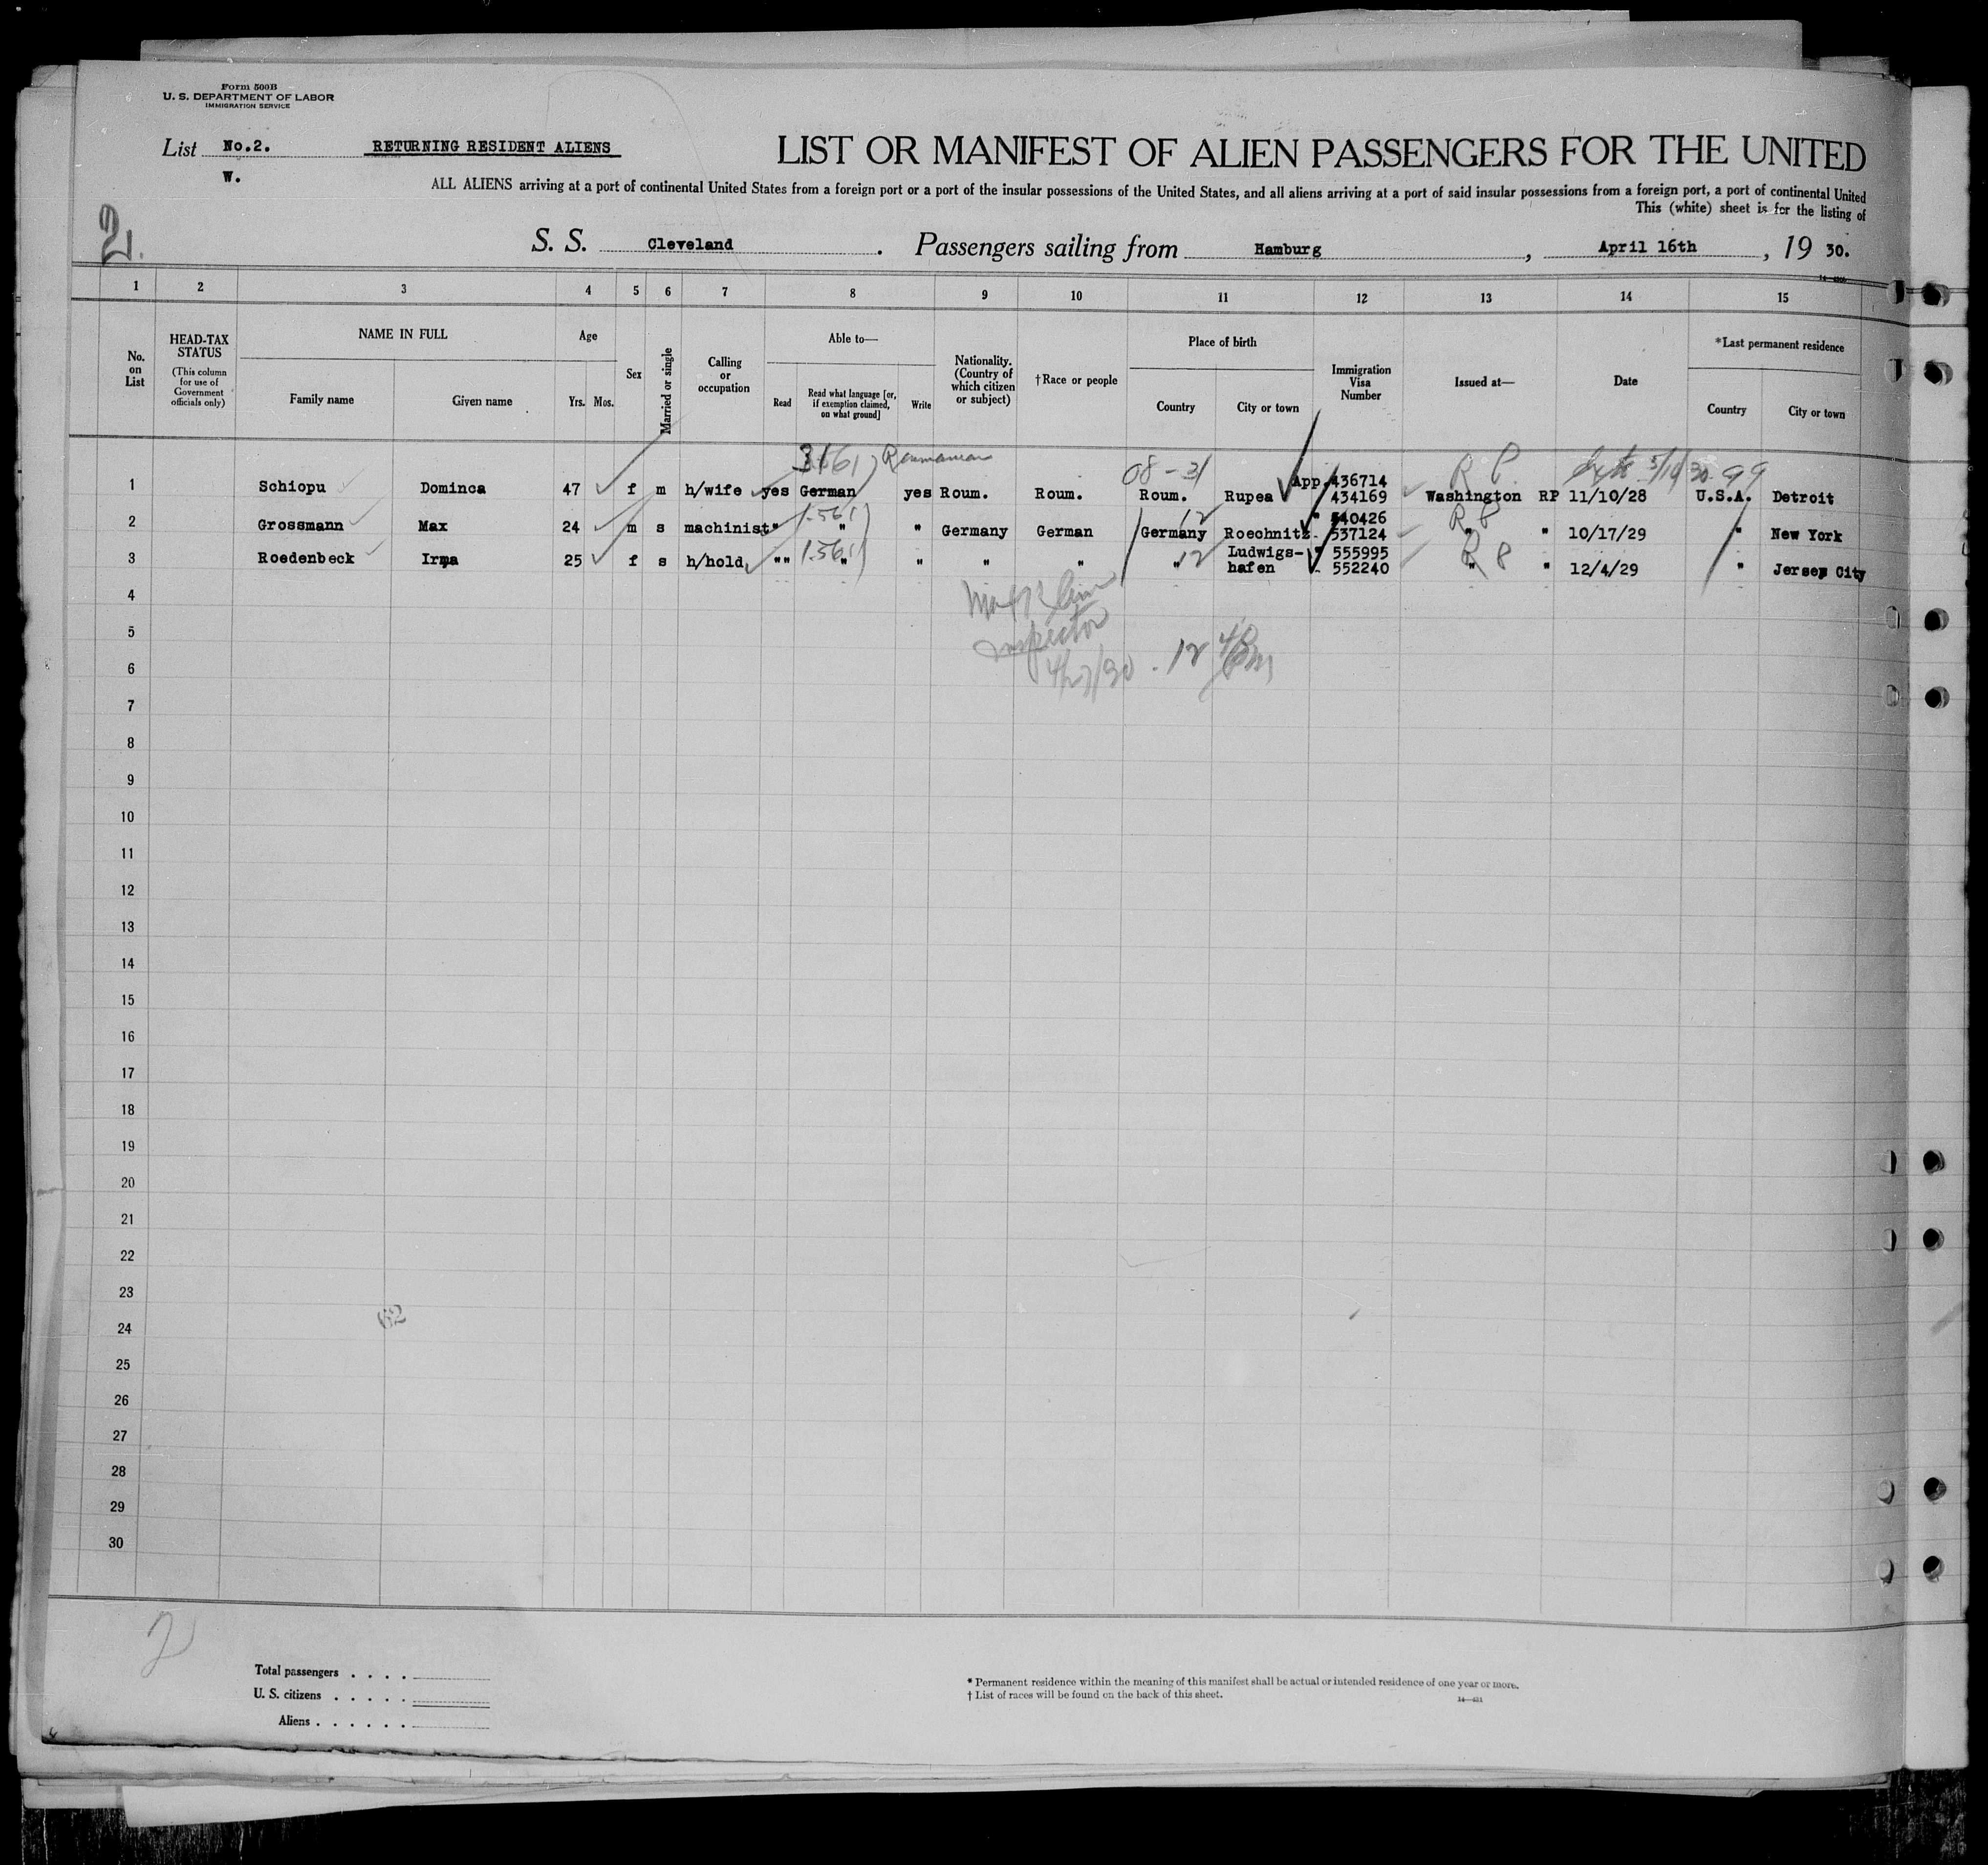 Form 500B
U. S. DEPARTMENT OF LABOR
IMMIGRATION SERVICE
List No.2. RETURNING RESIDENT ALIENS LIST OR MANIFEST OF ALIEN PASSENGERS FOR THE UNITED
W.
ALL ALIENS arriving at a port of continental United States from a foreign port or a port of the insular possessions of the United States, and all aliens arriving at a port of said insular possessions from a foreign port, a port of continental United
This (white) sheet is for the listing of
2.
S. S. Cleveland . Passengers sailing from Hamburg , April 16th , 19 30.
1 2 3 4 5 6 7 8 9 10 11 12 13 14 15
No. on List
HEAD-TAX STATUS
(This column for use of Government officials only)
NAME IN FULL
Family name Given name
Age
Yrs. Mos.
Sex
Married or single
Calling or occupation
Able to—
Read
Read what language [or, if exemption claimed, on what ground]
Write
Nationality. (Country of which citizen or subject)
†Race or people
Place of birth
Country City or town
Immigration Visa Number
Issued at—
Date
*Last permanent residence
Country City or town
Roumanian 08-31 R P 5/10/30 99
App. 436714
1 Schiopu Dominca 47 f m h/wife yes German yes Roum. Roum. Roum. Rupea 434169 Washington RP 11/10/28 U.S.A. Detroit
12 " 540426
2 Grossmann Max 24 m s machinist " " " Germany German Germany Roechnitz 537124 " " 10/17/29 " New York
Ludwigs- " 555995
3 Roedenbeck Irma 25 f s h/hold "" " " " " " hafen 552240 " " 12/4/29 " Jersey City
12
4
Inspector
5
4/27/30 12
6
7
8
9
10
11
12
13
14
15
16
17
18
19
20
21
22
23
24
25
26
27
28
29
30
2
Total passengers . . . .
U. S. citizens . . . . .
Aliens . . . . . .
* Permanent residence within the meaning of this manifest shall be actual or intended residence of one year or more.
† List of races will be found on the back of this sheet.